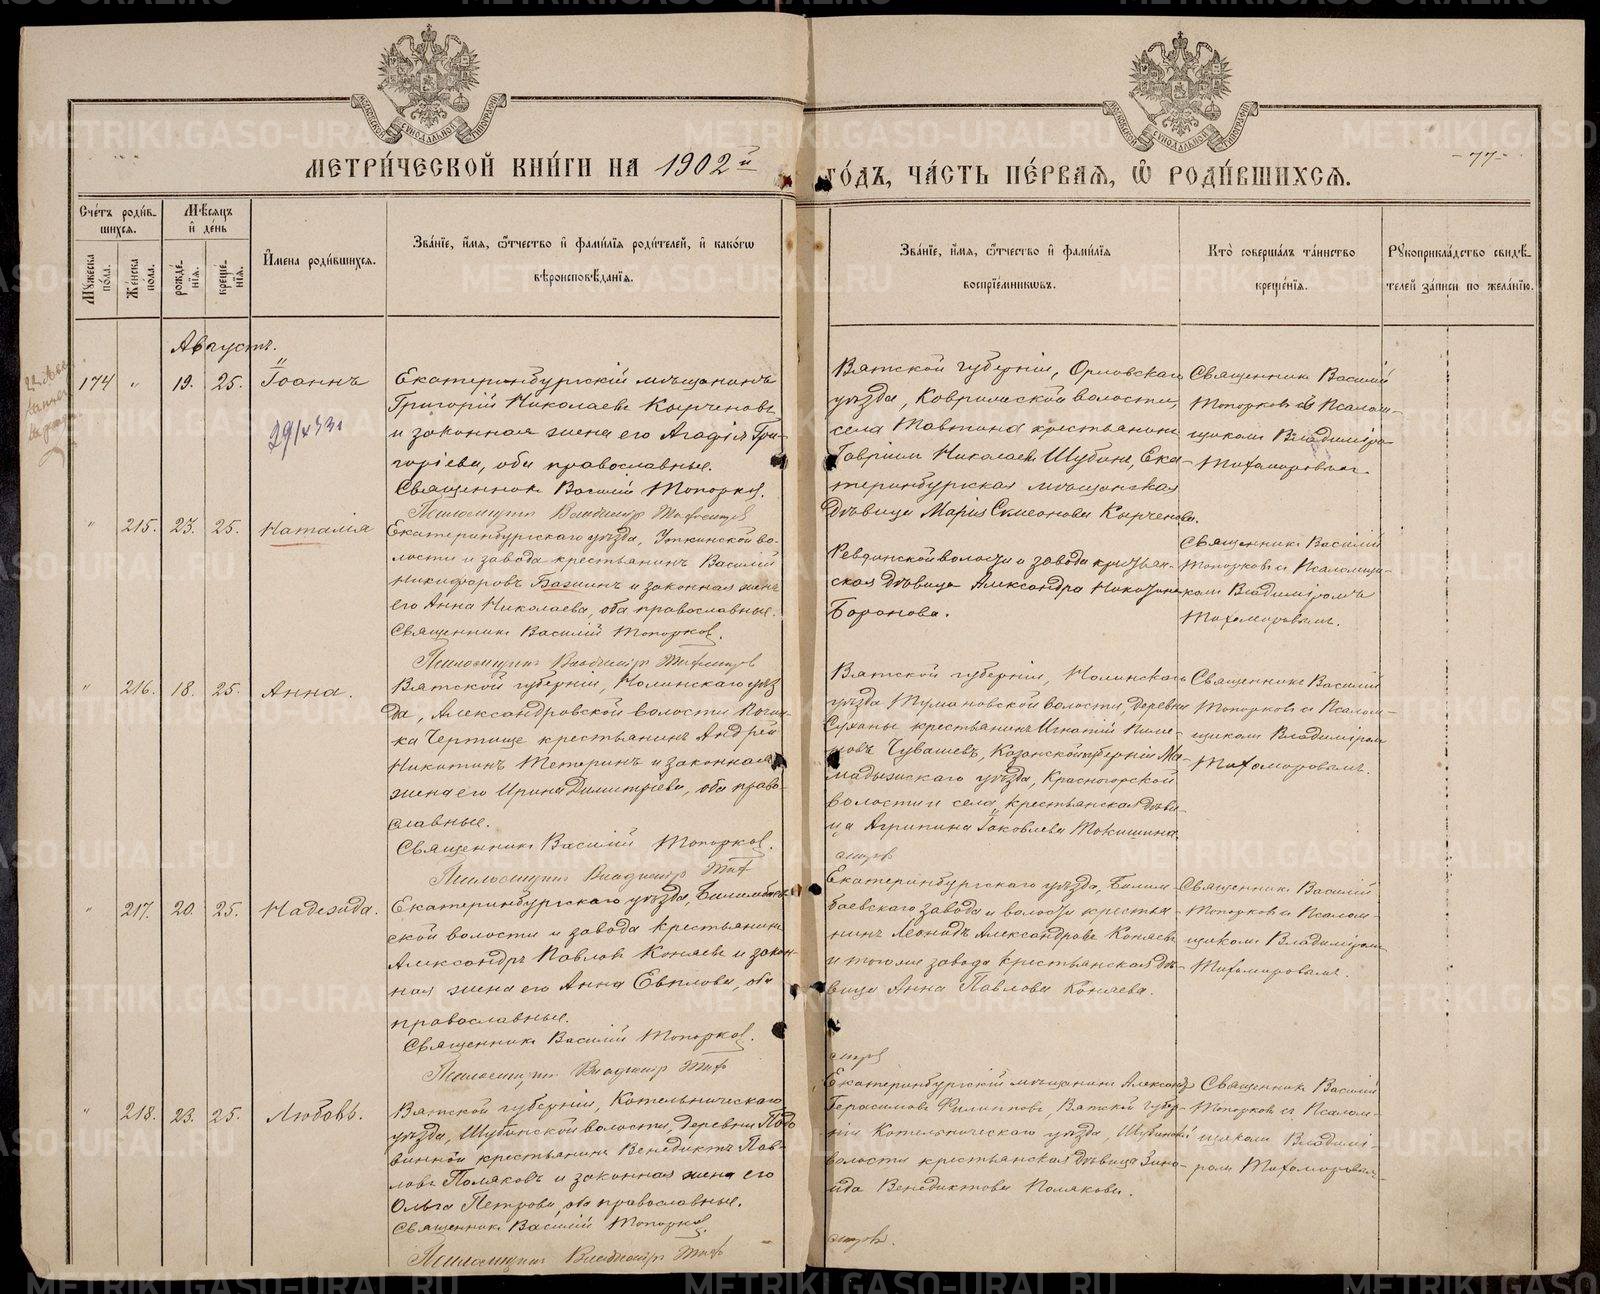 МЕТРИ́ЧЕСКОЙ КНИ́ГИ НА 1902й ГО́ДЪ, ЧА́СТЬ ПЕ́РВАѦ, Ѡ҆ РОДИ́ВШИХСѦ.
-77-
Сче́тъ роди́в-
шихсѧ.
Мꙋ́жеска по́ла.
Же́нска по́ла.
Мѣ́сѧцъ и҆ де́нь
рожде́-
нїѧ.
креще́-
нїѧ.
И҆мена роди́вшихсѧ.
Зва́нїе, и҆́мѧ, ѻ҆́тчество и҆ фами́лїѧ роди́телей, и҆ како́гѡ
вѣроисповѣ́данїѧ.
Зва́нїе, и҆́мѧ, ѻ҆́тчество и҆ фами́лїѧ
воспрїе́мникѡвъ.
Кто̀ соверша́лъ та́инство
креще́нїѧ.
Рꙋкоприкла́дство свидѣ́-
телей за́писи по жела́нїю.
Августъ.
174 " 19. 25. Іоаннъ
Екатеринбургскій мѣщанинъ
Григорій Николаевъ Кырченовъ
и законная жена его Агафія Гри-
горіева, оба православные.
Священникъ Василій Топорковъ.
Псаломщикъ Владиміръ
Вятской губерніи, Орловскаго
уѣзда, волости,
села крестьянинъ
Гавріилъ Николаевъ Шубинъ, Ека-
теринбургская мѣщанская
дѣвица Марія Симеонова Кырченова.
Священникъ Василій
Топорковъ съ Псалом-
щикомъ Владиміромъ
" 215. 23. 25. Наталія
Екатеринбургскаго уѣзда, Уткинской во-
лости и завода крестьянинъ Василій
Никифоровъ Бажинъ и законная жена
его Анна Николаева, оба православные.
Священникъ Василій Топорковъ.
Псаломщикъ Владиміръ
Ревдинской волости и завода крестьян-
ская дѣвица Александра
Боронова.
Священникъ Василій
Топорковъ съ Псаломщи-
комъ Владиміромъ
" 216. 18. 25. Анна.
Вятской губерніи, Нолинскаго уѣз
да, Александровской волости Почин-
ка Чертище крестьянинъ Андрей
Никитинъ Тетеринъ и законная
жена его Ирина Димитріева, оба право-
славные.
Священникъ Василій Топорковъ.
Псаломщикъ Владиміръ
Вятской губерніи, Нолинскаго
уѣзда Тумановской волости, деревни
крестьянинъ Игнатій
Чувашевъ, Казанской губерніи Ма-
мадышскаго уѣзда, Красногорской
волости и села, крестьянская дѣви-
ца Агрипина Іаковлева Токишина
Священникъ Василій
Топорковъ съ Псалом-
щикомъ Владиміромъ
" 217. 20. 25. Надежда.
Екатеринбургскаго уѣзда, Билимбаев-
ской волости и завода крестьянинъ
Александръ Павловъ Коняевъ и закон-
ная жена его Анна Евплова, оба
православные.
Священникъ Василій Топорковъ.
Псаломщикъ Владиміръ
Екатеринбургскаго уѣзда, Билим-
баевскаго завода и волости крестья-
нинъ Леонидъ Александровъ Коняевъ
и того же завода крестьянская дѣ-
вица Анна Павлова Коняева.
Священникъ Василій
Топорковъ съ Псалом-
щикомъ Владиміромъ
" 218. 23. 25. Любовь.
Вятской губерніи, Котельническаго
уѣзда, Шубинской волости, деревни Подо
винной крестьянинъ Венедиктъ Пав-
ловъ Поляковъ и законная жена его
Ольга Петрова, оба православные.
Священникъ Василій Топорковъ.
Псаломщикъ Владиміръ
Екатеринбургскій мѣщанинъ Александръ
Герасимовъ Филипповъ, Вятской губер-
ніи Котельническаго уѣзда, Шубинской
волости крестьянская дѣвица Зина-
ида Венедиктова Полякова.
Священникъ Василій
Топорковъ съ Псалом-
щикомъ Владимі-
ромъ
METRIKI.GASO-URAL.RU